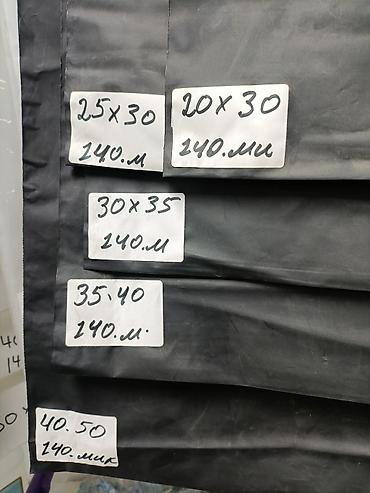 25x30
140.м
20x30
140.мк
30x35
140.м
35.40
140.м.
40.50
140.мик